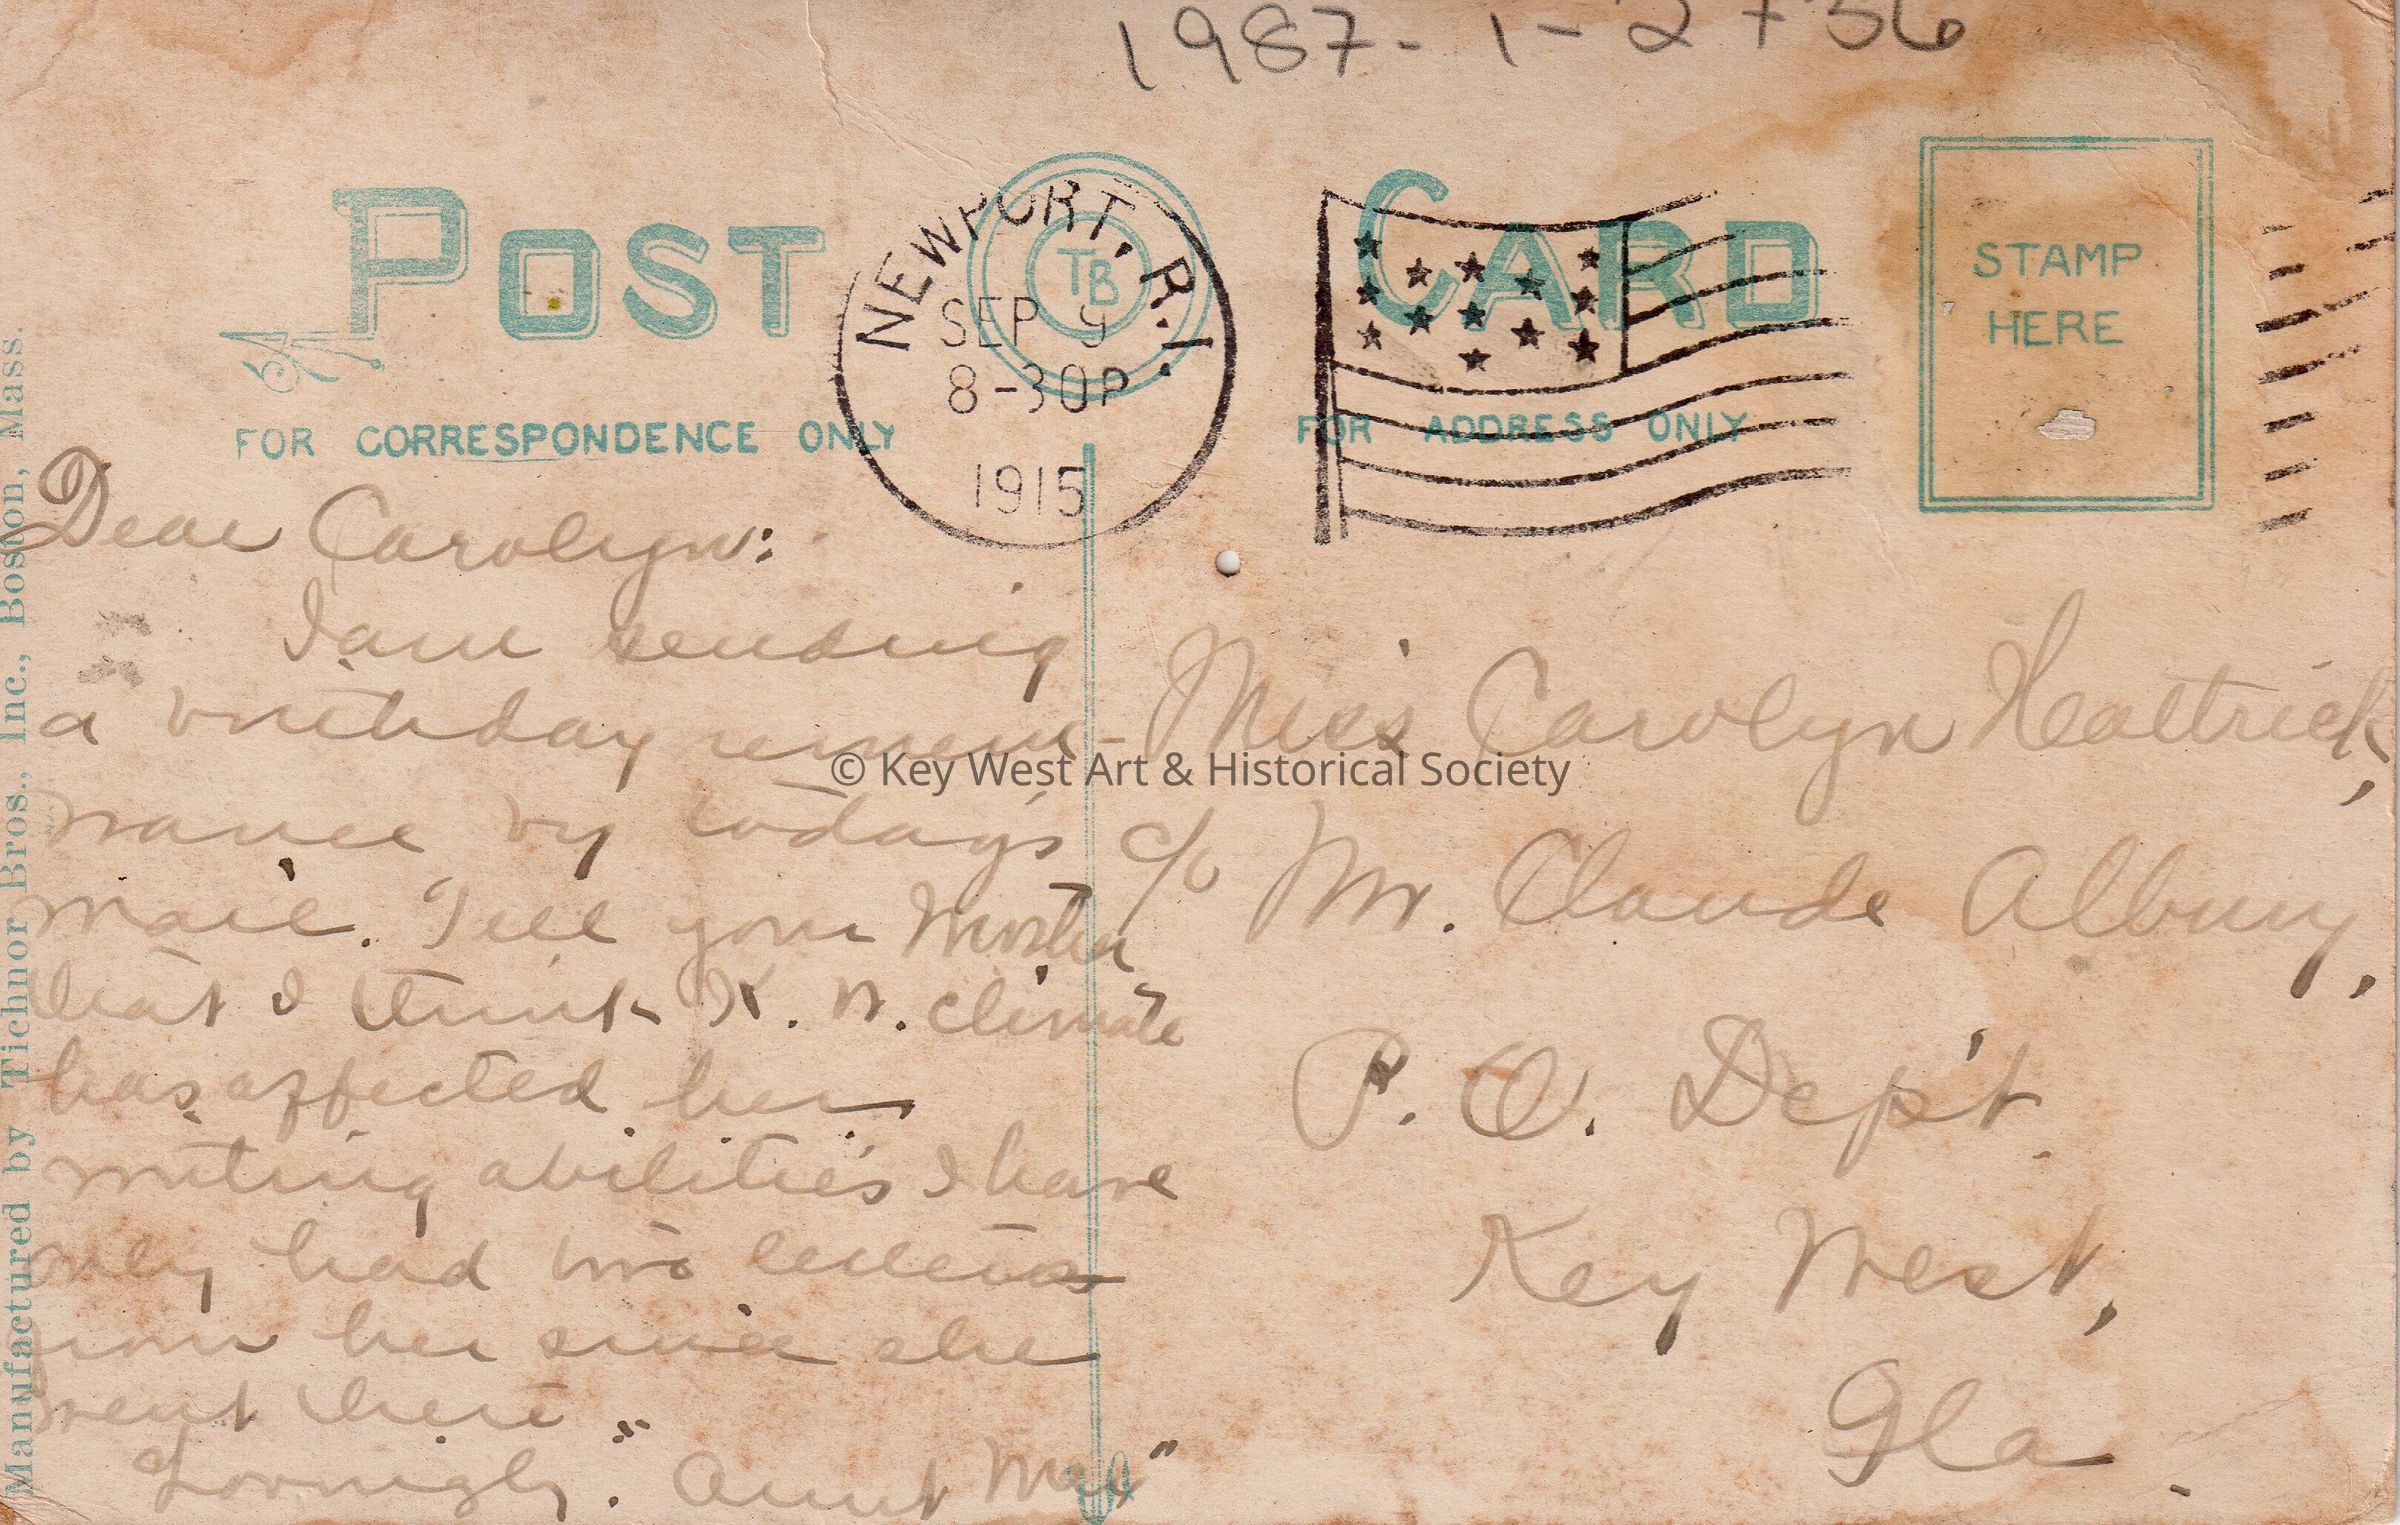 1987-1-2736
POST CARD
TB
NEWPORT, R.I.
SEP 9
8-30P
1915
STAMP
HERE
FOR CORRESPONDENCE ONLY
FOR ADDRESS ONLY
Manufactured by Tichnor Bros., Inc., Boston, Mass.
Dear Carolyn:
I am sending
a birthday remem-
brance by today's
mail. Tell your Mother
that I think K. W. climate
has affected her
writing abilities I have
only had two letters
from her since she
went there.
Lovingly, "Aunt
Miss Carolyn
c/o Mr. Claude Albury,
P. O. Dep't.
Key West,
Fla.
© Key West Art & Historical Society